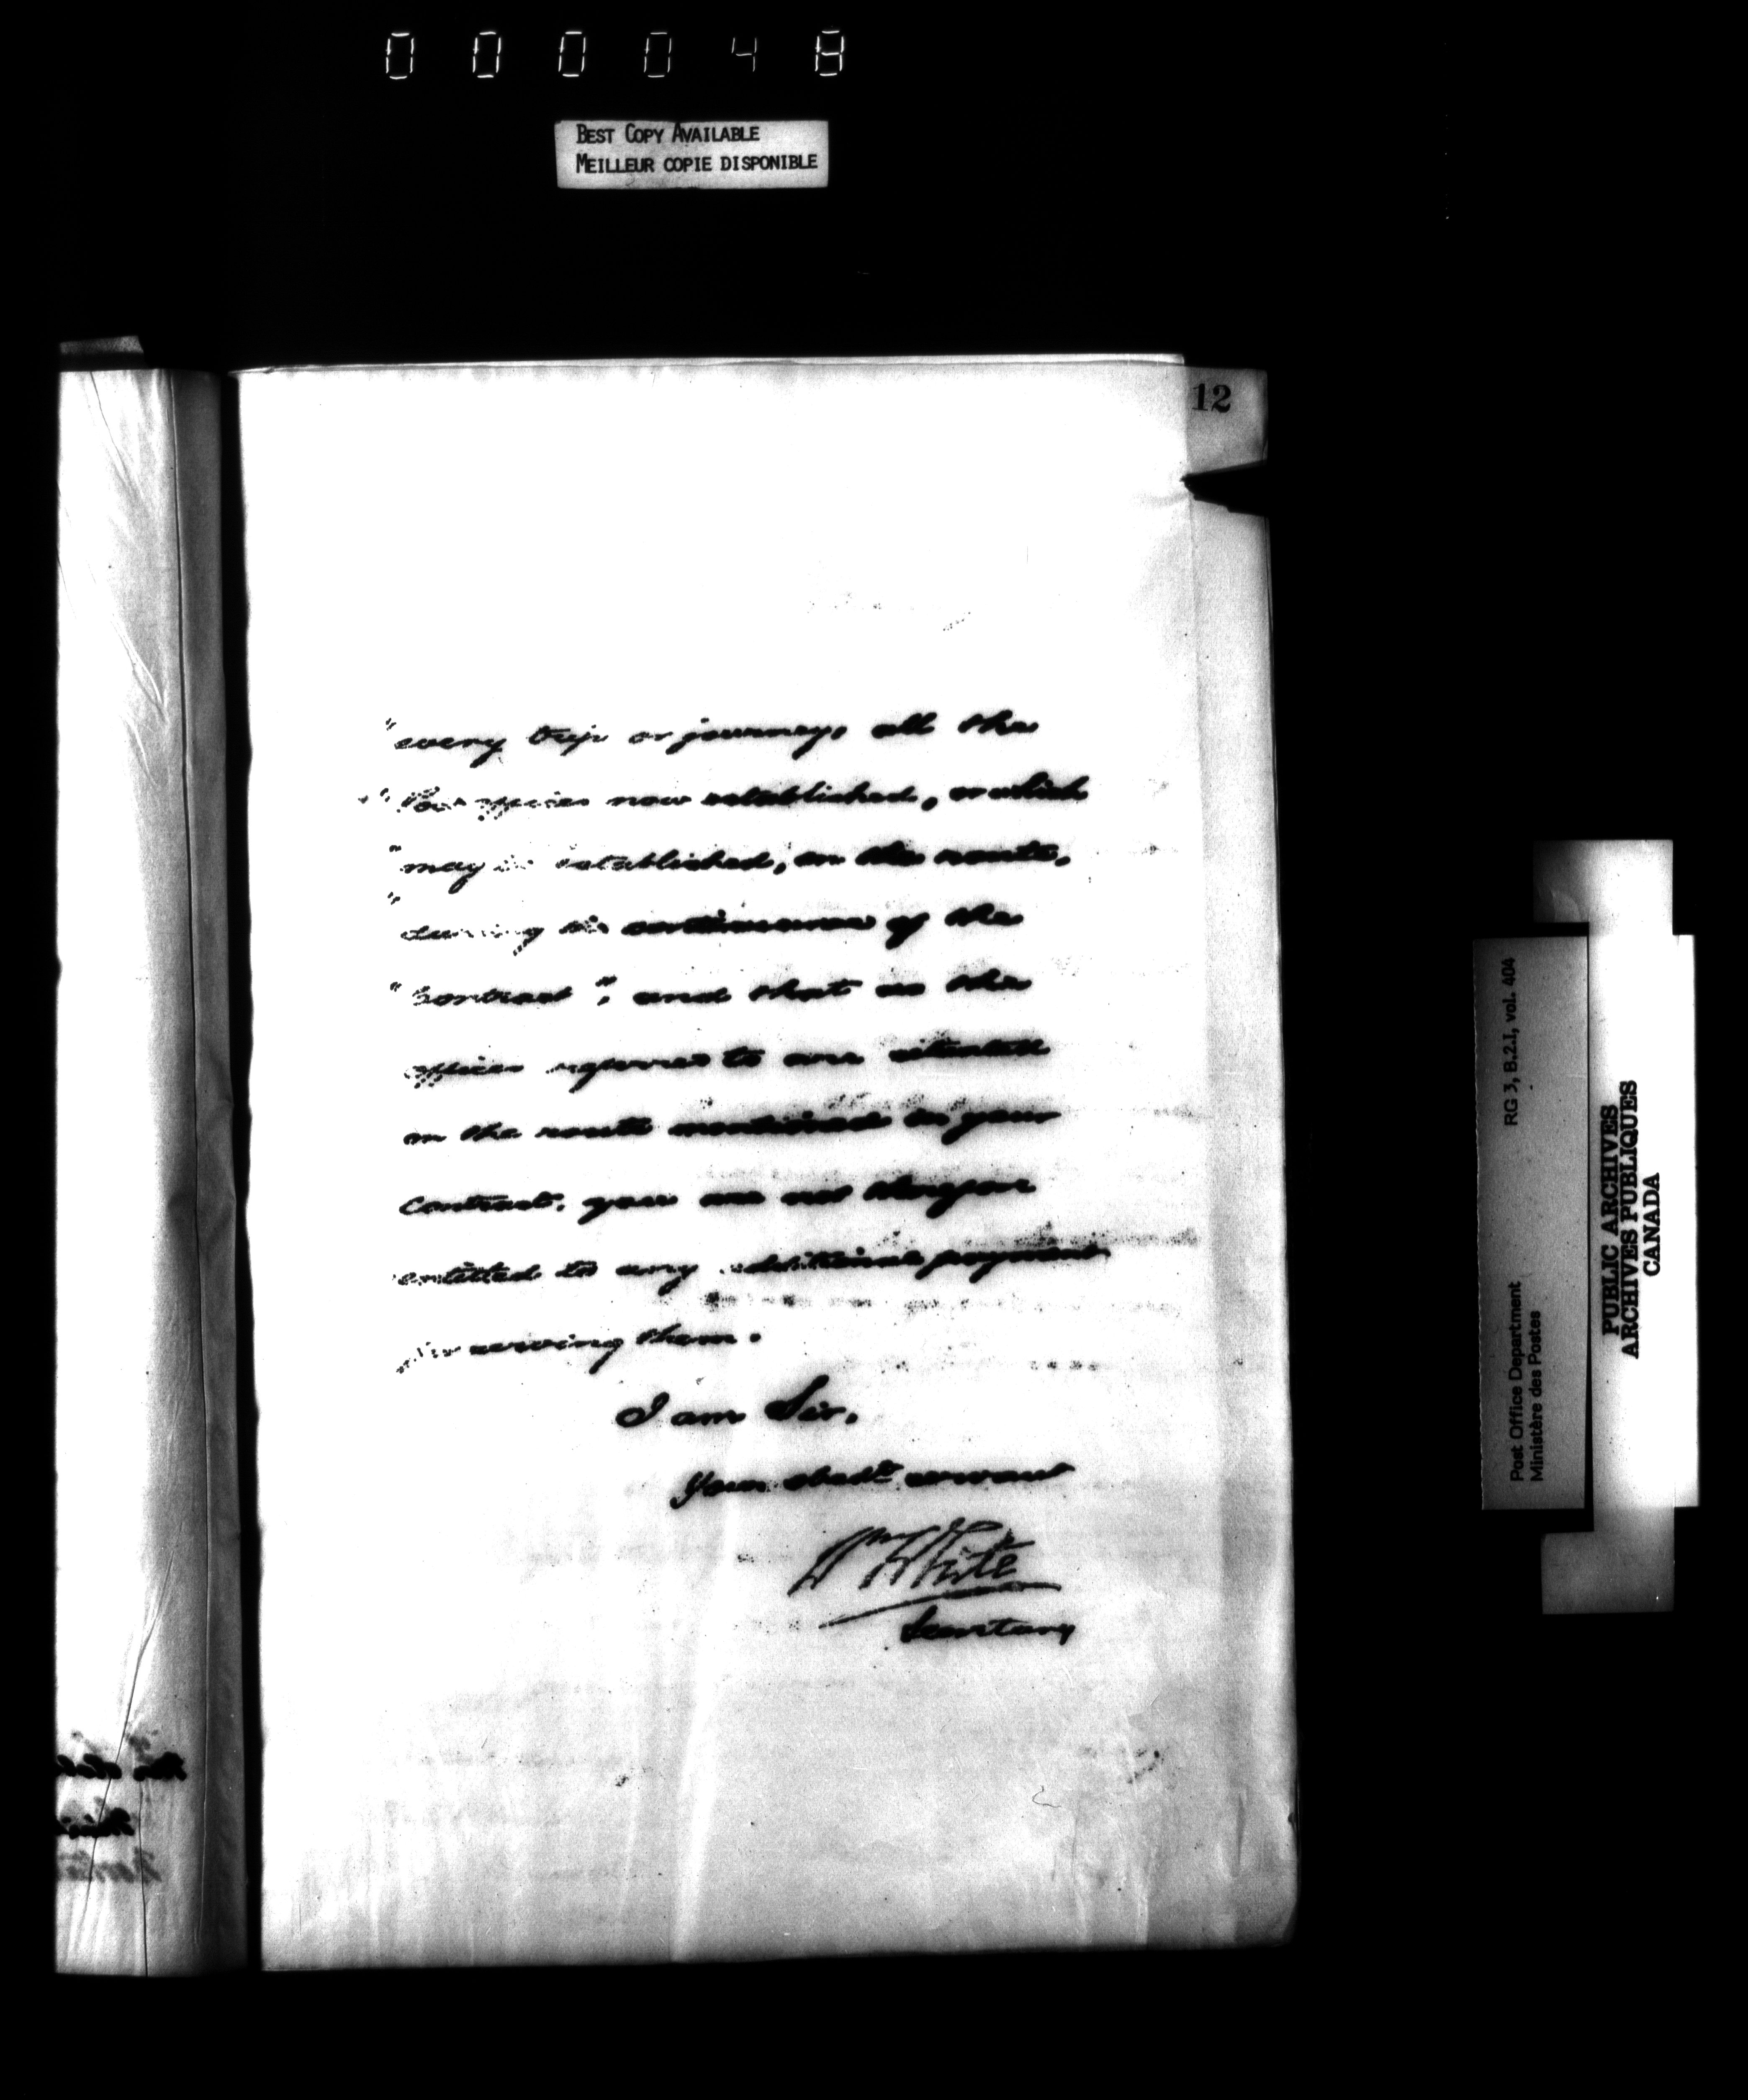 000048
BEST COPY AVAILABLE
MEILLEUR COPIE DISPONIBLE
12
"every trip or journey, all the
"Post offices now established, or which
"may be established, on the route,
"during the continuance of the
"Contract", and that as the
offices referred to are situated
on the route mentioned in your
Contract, you are not therefore
entitled to any additional payment
for serving them.
I am Sir,
Your obedt servant
Wm White
Secretary
Post Office Department RG 3, B.2.I, vol. 404
Ministère des Postes
PUBLIC ARCHIVES
ARCHIVES PUBLIQUES
CANADA